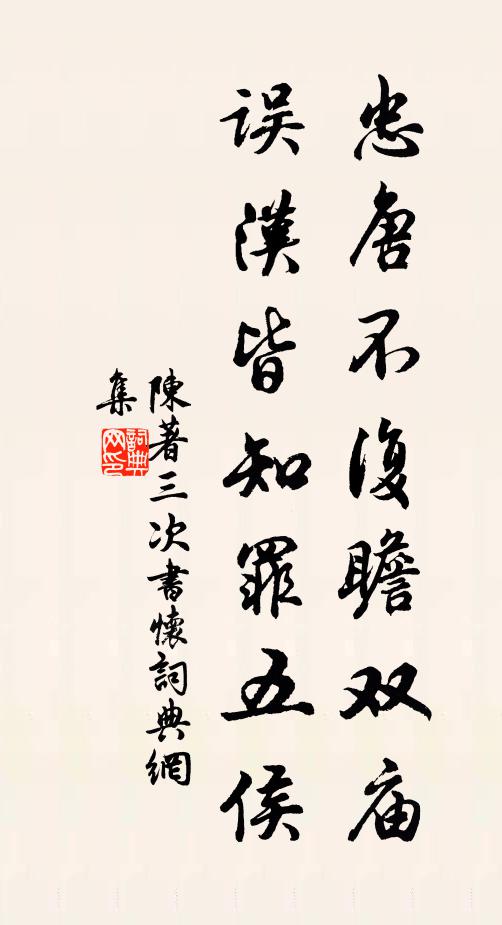 忠唐不復瞻双庙
误漢皆知罪五侯
陳著三次書懷詞典網
集
詞典网印